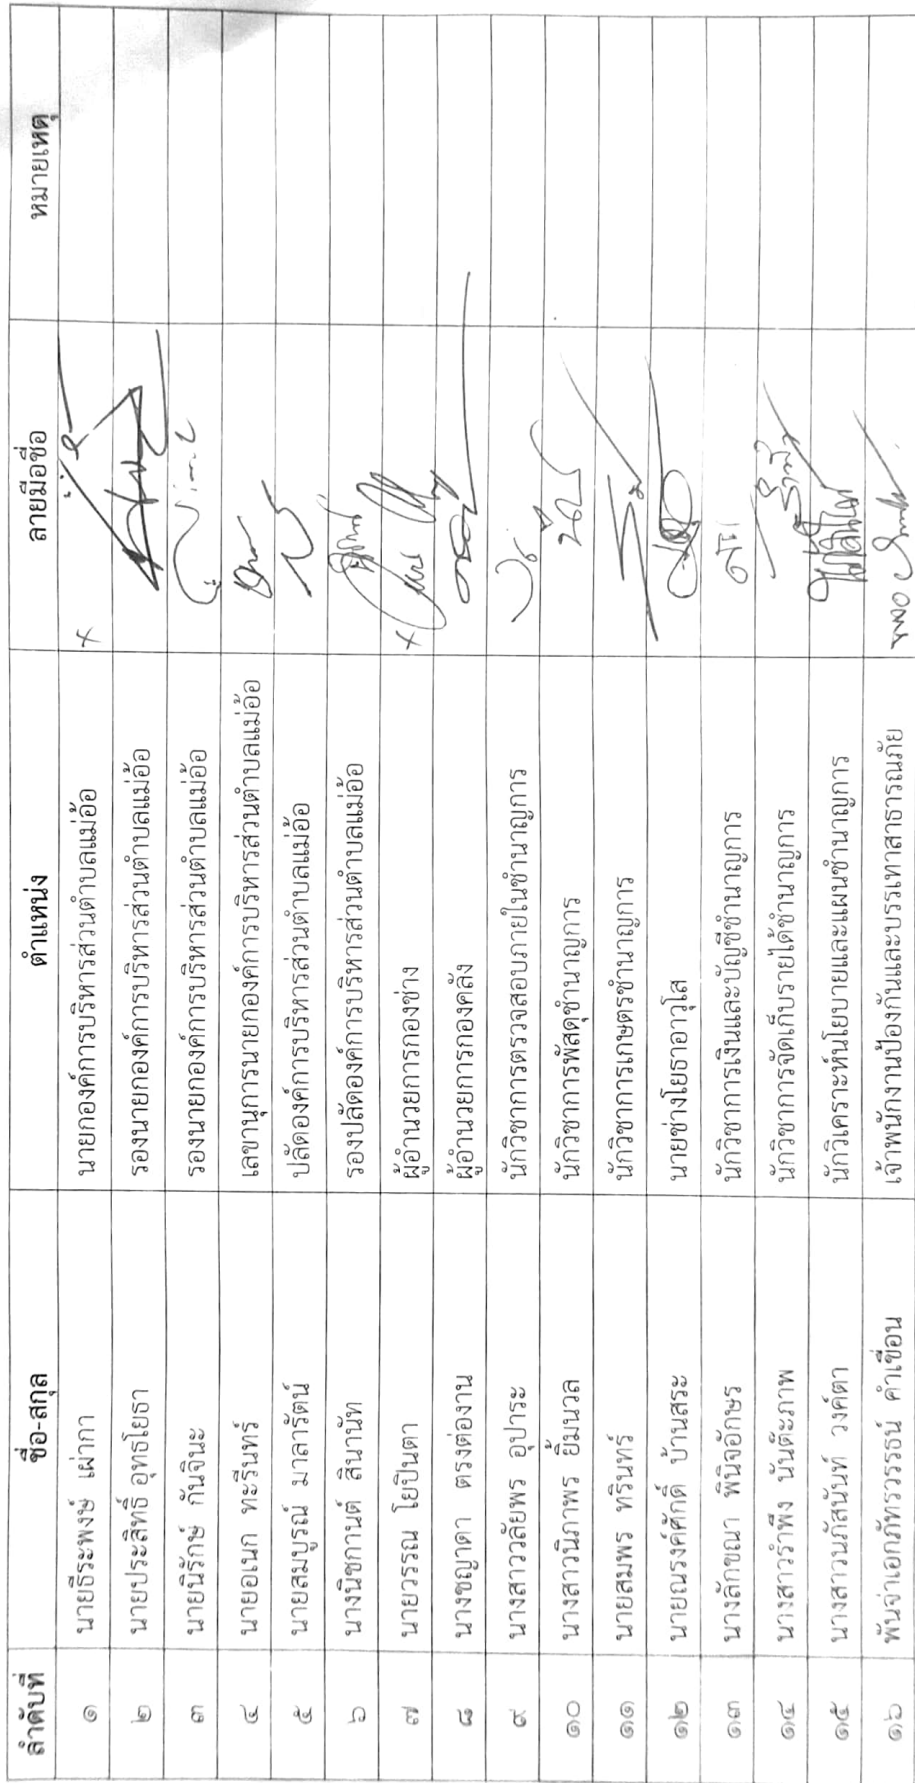 ลำดับที่ ชื่อ-สกุล ตำแหน่ง ลายมือชื่อ หมายเหตุ
๑ นายธีระพงษ์ เผ่ากา นายกองค์การบริหารส่วนตำบลแม่อ้อ
๒ นายประสิทธิ์ อุทธโยธา รองนายกองค์การบริหารส่วนตำบลแม่อ้อ
๓ นายนิรักษ์ กันจินะ รองนายกองค์การบริหารส่วนตำบลแม่อ้อ
๔ นายอเนก ทะรินทร์ เลขานุการนายกองค์การบริหารส่วนตำบลแม่อ้อ
๕ นายสมบูรณ์ มาลารัตน์ ปลัดองค์การบริหารส่วนตำบลแม่อ้อ
๖ นางนิชกานต์ สีนานัท รองปลัดองค์การบริหารส่วนตำบลแม่อ้อ
๗ นายวรรณ โยปินตา ผู้อำนวยการกองช่าง
๘ นางชญาดา ตรงต่องาน ผู้อำนวยการกองคลัง
๙ นางสาววลัยพร อุปาระ นักวิชาการตรวจสอบภายในชำนาญการ
๑๐ นางสาวนิภาพร ยิ้มนวล นักวิชาการพัสดุชำนาญการ
๑๑ นายสมพร ทรินทร์ นักวิชาการเกษตรชำนาญการ
๑๒ นายณรงค์ศักดิ์ บ้านสระ นายช่างโยธาอาวุโส
๑๓ นางลักขณา พินิจอักษร นักวิชาการเงินและบัญชีชำนาญการ
๑๔ นางสาวรำพึง นันต๊ะภาพ นักวิชาการจัดเก็บรายได้ชำนาญการ
๑๕ นางสาวนภัสนันท์ วงค์ตา นักวิเคราะห์นโยบายและแผนชำนาญการ
๑๖ พันจ่าเอกภัทรวรรธน์ คำเขื่อน เจ้าพนักงานป้องกันและบรรเทาสาธารณภัย